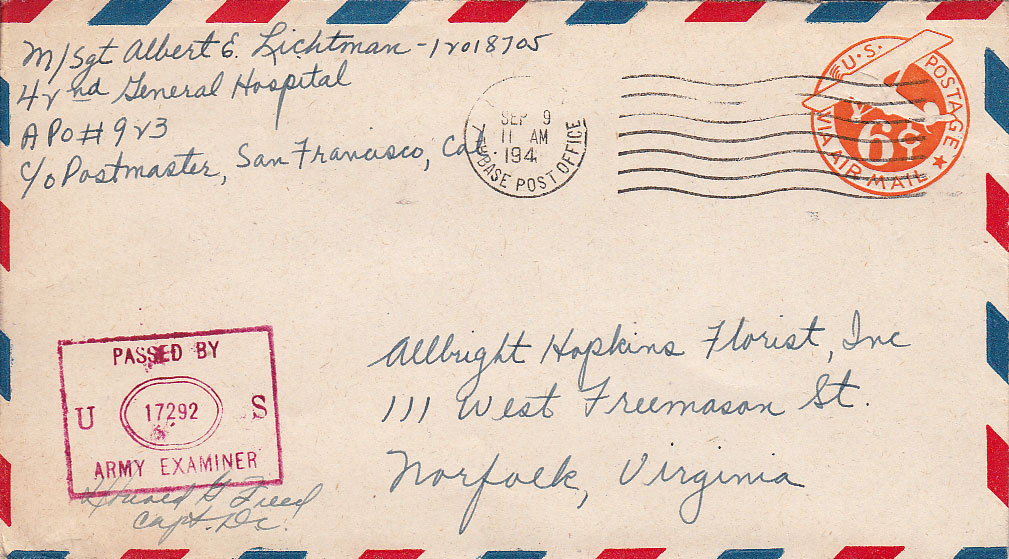 M/Sgt Albert E. Lichtman - 12018705
42nd General Hospital
APO # 923
c/o Postmaster, San Francisco, Cal
SEP 9
11 AM
194
BASE POST OFFICE
U.S. POSTAGE
6¢
VIA AIR MAIL
PASSED BY
U 17292 S
ARMY EXAMINER
Capt. Dc.
Allbright Hopkins Florist, Inc
111 West Freemason St.
Norfolk, Virginia